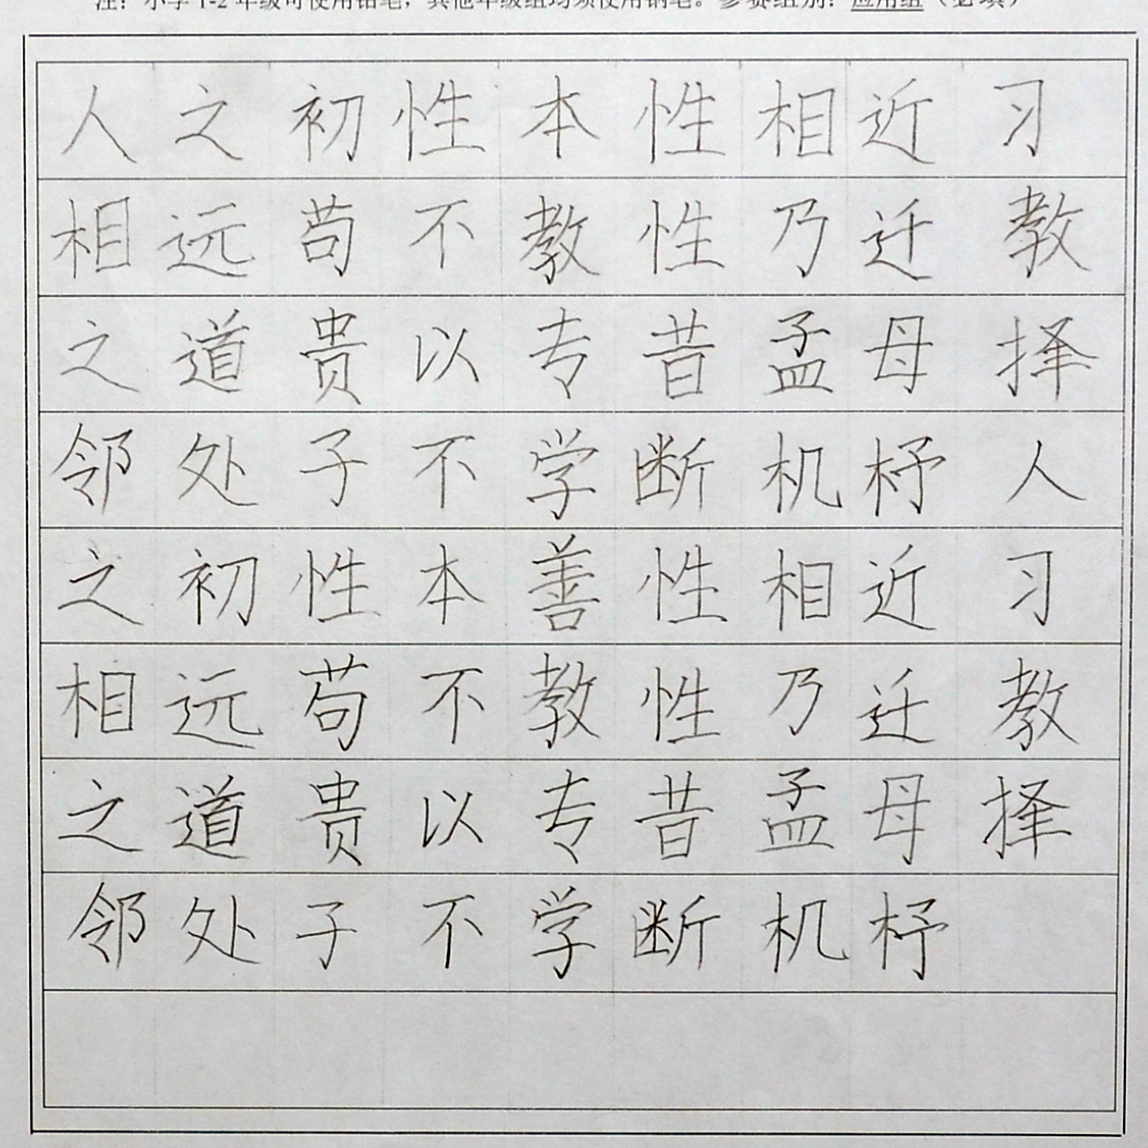 注：小学1-2年级可使用铅笔，其他年级组均须使用钢笔。参赛组别：应用组（必填）
人之初性本性相近习
相远苟不教性乃迁教
之道贵以专昔孟母择
邻处子不学断机杼人
之初性本善性相近习
相远苟不教性乃迁教
之道贵以专昔孟母择
邻处子不学断机杼